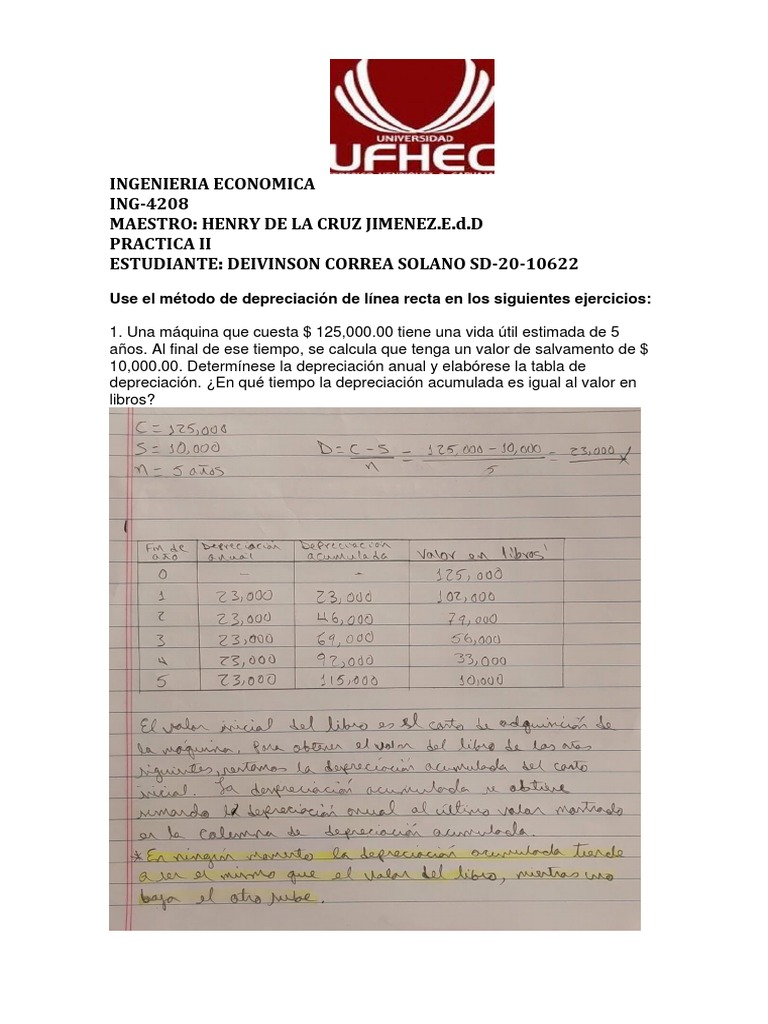 UNIVERSIDAD
UFHEC
INGENIERIA ECONOMICA
ING-4208
MAESTRO: HENRY DE LA CRUZ JIMENEZ.E.d.D
PRACTICA II
ESTUDIANTE: DEIVINSON CORREA SOLANO SD-20-10622
Use el método de depreciación de línea recta en los siguientes ejercicios:
1. Una máquina que cuesta $ 125,000.00 tiene una vida útil estimada de 5
años. Al final de ese tiempo, se calcula que tenga un valor de salvamento de $
10,000.00. Determínese la depreciación anual y elabórese la tabla de
depreciación. ¿En qué tiempo la depreciación acumulada es igual al valor en
libros?
C = 125,000
S = 10,000 D = C - S / n = 125,000 - 10,000 / 5 = 23,000
n = 5 años
Fin de año Depreciación anual Depreciación acumulada Valor en libros
0 - - 125,000
1 23,000 23,000 102,000
2 23,000 46,000 79,000
3 23,000 69,000 56,000
4 23,000 92,000 33,000
5 23,000 115,000 10,000
El valor inicial del libro es el costo de adquisición de
la máquina. Para obtener el valor del libro de los años
siguientes, restamos la depreciación acumulada del costo
inicial. La depreciación acumulada se obtiene
sumando la depreciación anual al último valor mostrado
en la columna de depreciación acumulada.
* En ningún momento la depreciación acumulada tiende
a ser el mismo que el valor del libro, mientras uno
baja el otro sube.